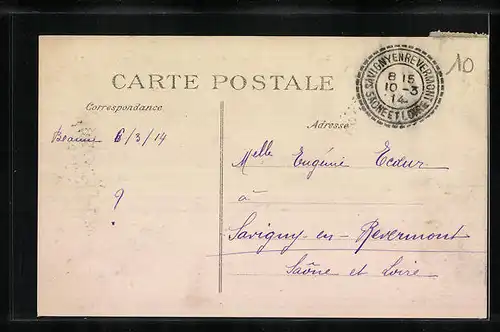 CARTE POSTALE
Correspondance
Adresse
SAVIGNY EN REVERMONT
8 15
10 - 3
14
SAÔNE ET LOIRE
10
Beaune 6/3/14
?
Melle Eugénie
à
Savigny-en-Revermont
Saône et Loire